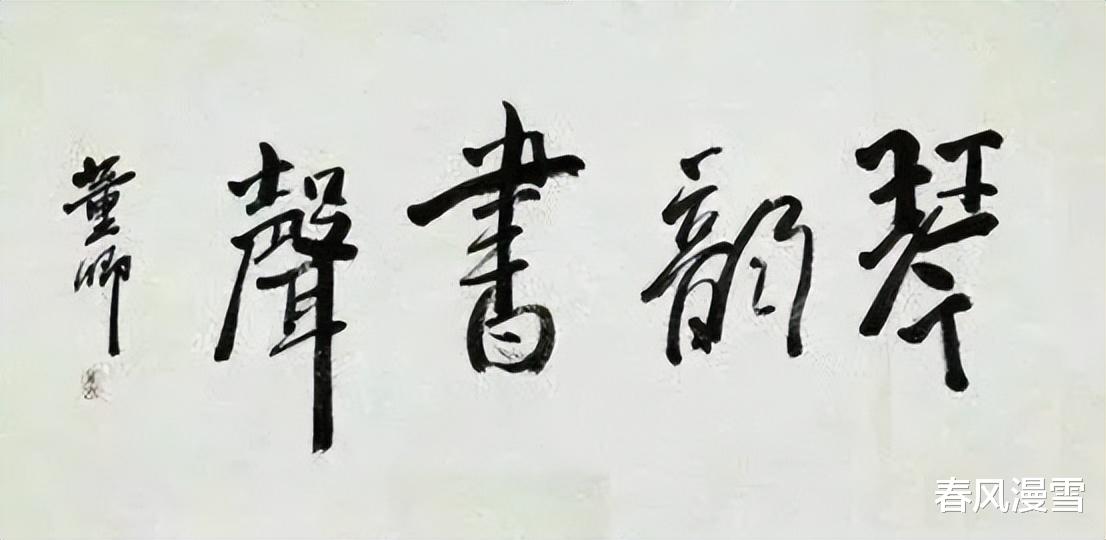 琴韵書聲
董卿
春风漫雪